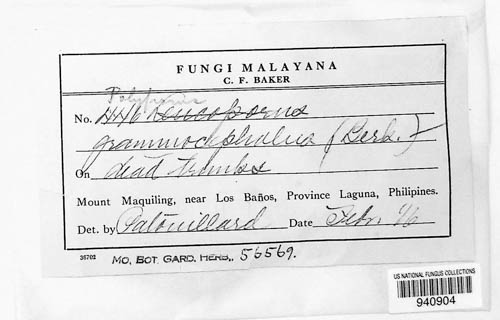 FUNGI MALAYANA
C. F. BAKER
Polyporus
No. 446 Leucoporus
grammocephalus (Berk.)
On dead trunks
Mount Maquiling, near Los Baños, Province Laguna, Philipines.
Det. by Patouillard Date Feb. 16
36702
MO. BOT. GARD. HERB., 56569.
US NATIONAL FUNGUS COLLECTIONS
940904